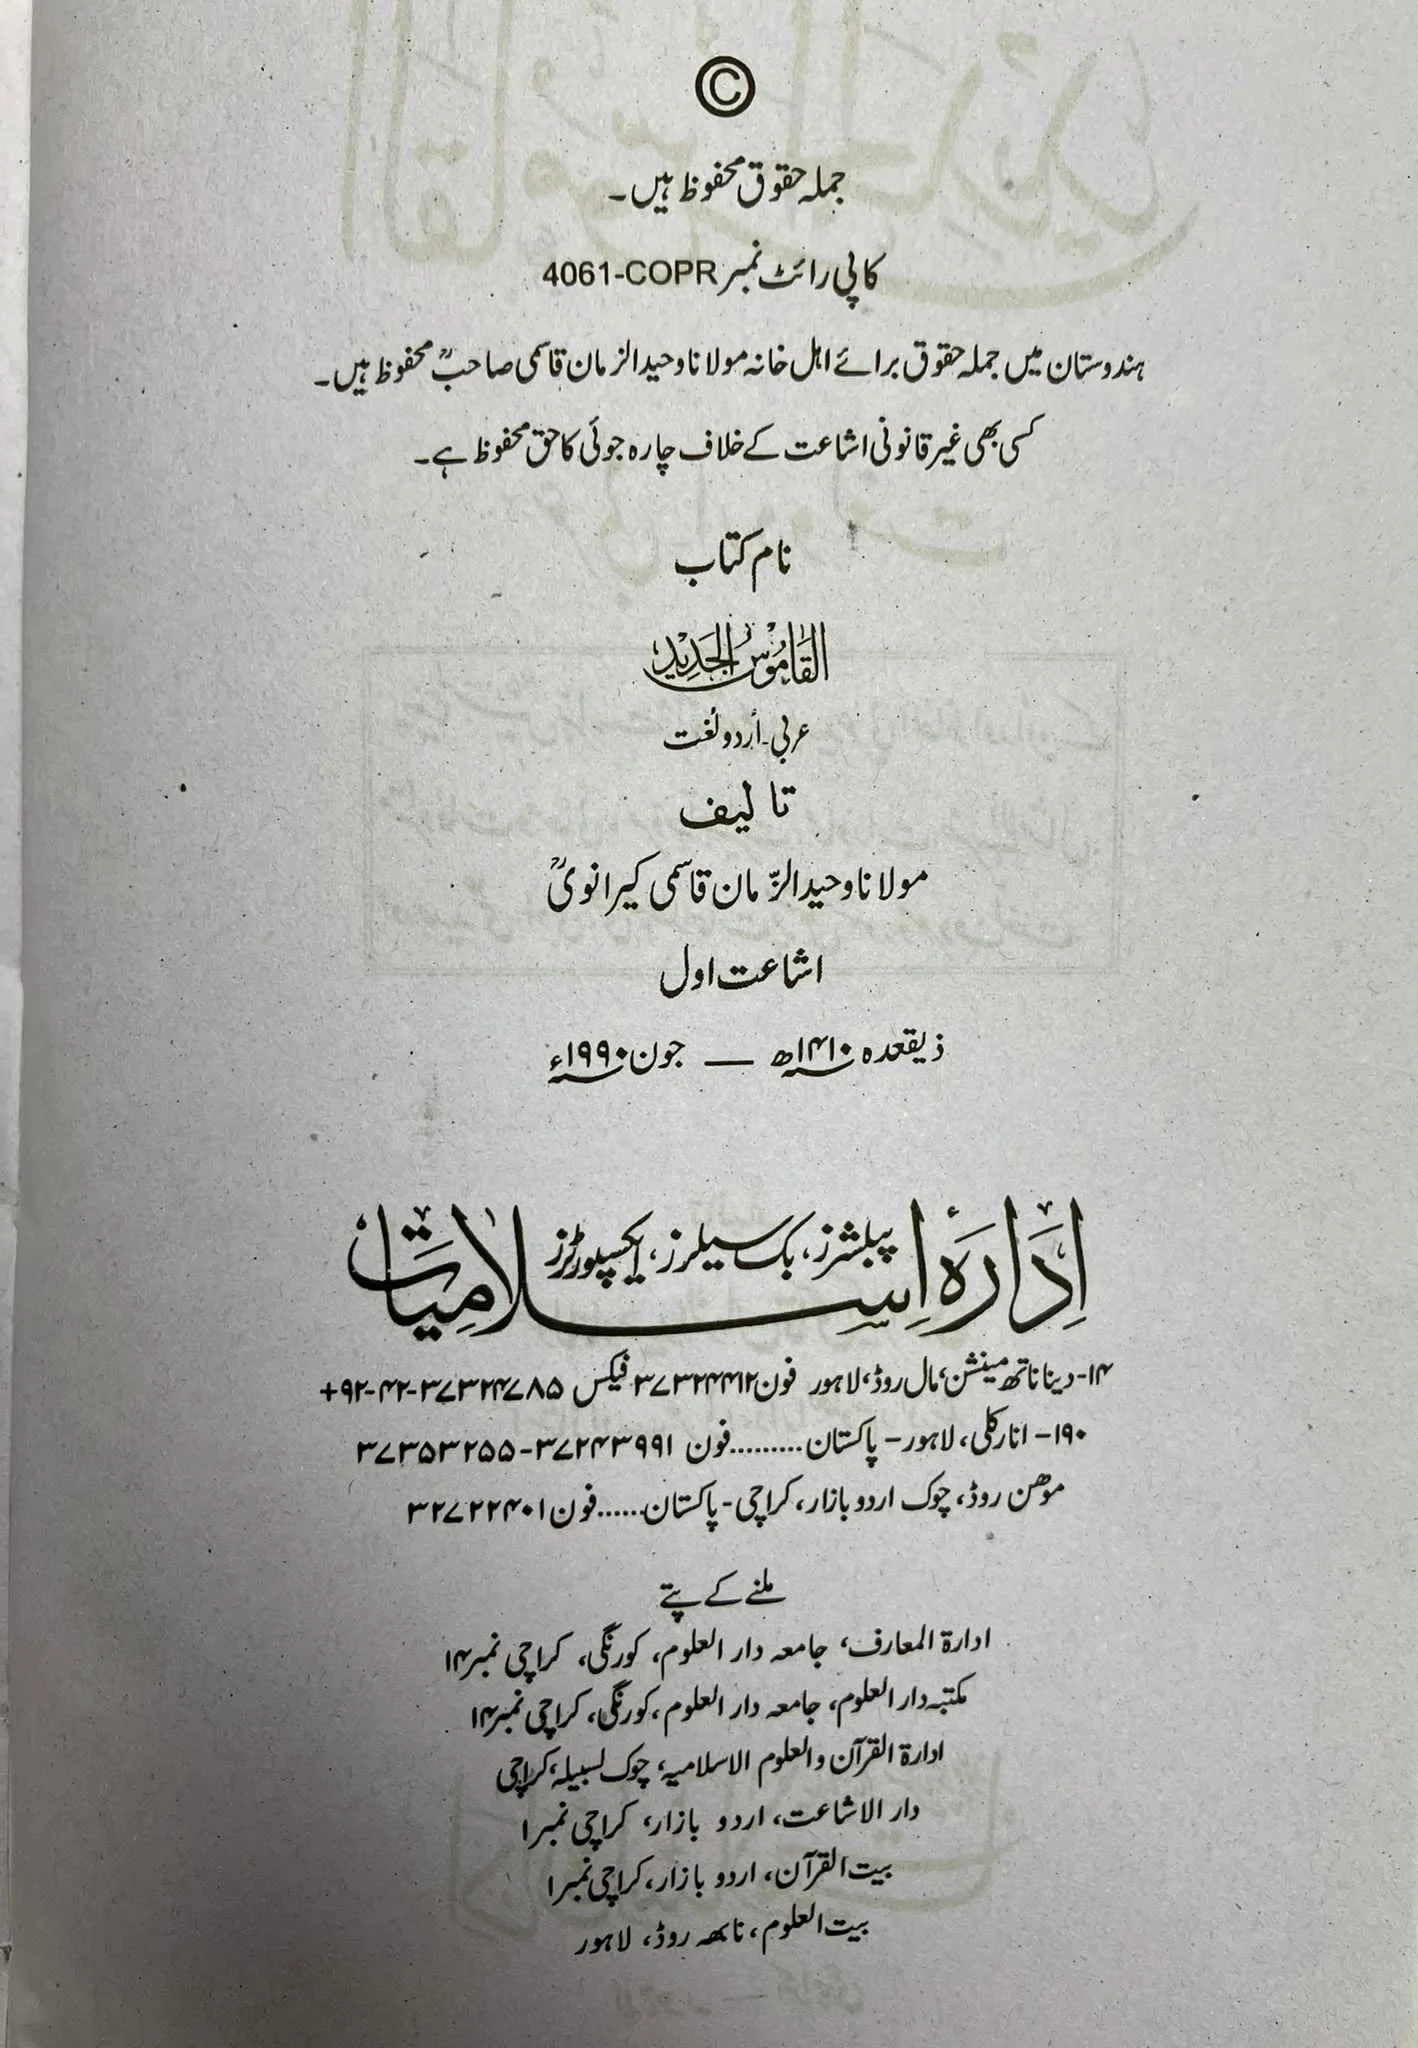 ©
جملہ حقوق محفوظ ہیں۔
کاپی رائٹ نمبر 4061-COPR
ہندوستان میں جملہ حقوق برائے اہل خانہ مولانا وحید الزمان قاسمی صاحبؒ محفوظ ہیں۔
کسی بھی غیر قانونی اشاعت کے خلاف چارہ جوئی کا حق محفوظ ہے۔
نام کتاب
القَامُوسُ الجَدِيْد
عربی۔ اُردو لُغت
تالیف
مولانا وحید الزّمان قاسمی کیرانویؒ
اشاعت اول
ذیقعدہ ۱۴۱۰ھ — جون ۱۹۹۰ء
اِدَارَۂ اِسلامِیَات
پبلشرز، بک سیلرز، ایکسپورٹرز
۱۴- دینا ناتھ مینشن، مال روڈ، لاہور فون ۳۷۳۲۴۴۱۲ فیکس ۳۷۳۲۴۷۸۵-۴۲-۹۲+
۱۹۰- انارکلی، لاہور- پاکستان.........فون ۳۷۲۴۳۹۹۱-۳۷۳۵۳۲۵۵
موھن روڈ، چوک اردو بازار، کراچی- پاکستان......فون ۳۲۷۲۲۴۰۱
ملنے کے پتے
ادارۃ المعارف، جامعہ دار العلوم، کورنگی، کراچی نمبر ۱۴
مکتبہ دار العلوم، جامعہ دار العلوم، کورنگی، کراچی نمبر ۱۴
ادارۃ القرآن والعلوم الاسلامیہ، چوک لسبیلہ، کراچی
دار الاشاعت، اردو بازار، کراچی نمبر ۱
بیت القرآن، اردو بازار، کراچی نمبر ۱
بیت العلوم، نابھہ روڈ، لاہور